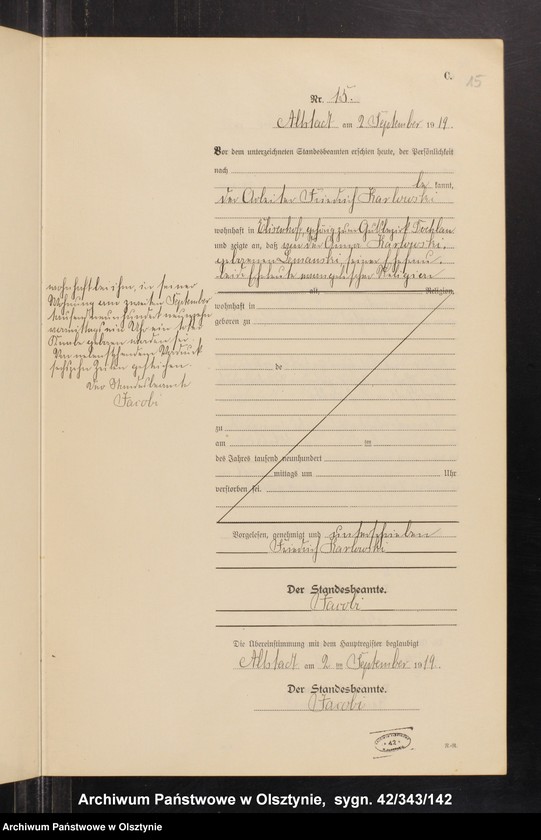 C.
15
Nr. 15.
Altstadt am 2 September 1919.
Vor dem unterzeichneten Standesbeamten erschien heute, der Persönlichkeit
nach
be kannt,
der Arbeiter Friedrich Karlowski
wohnhaft in Elisenhof, gehörig zum Gutsbezirk
und zeigte an, daß von der Karlowski,
geborenen seiner Ehefrau,
beide Eheleute evangelischer Religion
alt, Religion,
wohnhaft in
geboren zu
wohnhaft bei ihm, in seiner
Wohnung am zweiten September
tausend neunhundert neunzehn
vormittags ein Uhr ein totes
Knabe geboren worden sei
Von nebenstehendem Vordruck
sechzehn Zeilen gestrichen.
Der Standesbeamte
Jacobi
de
zu
am ten
des Jahres tausend neunhundert
mittags um Uhr
verstorben sei.
Vorgelesen, genehmigt und unterschrieben
Friedrich Karlowski
Der Standesbeamte.
Jacobi
Die Übereinstimmung mit dem Hauptregister beglaubigt
Altstadt am 2 ten September 1919.
Der Standesbeamte.
Jacobi
42
Archiwum Państwowe w Olsztynie, sygn. 42/343/142
Archiwum Państwowe w Olsztynie